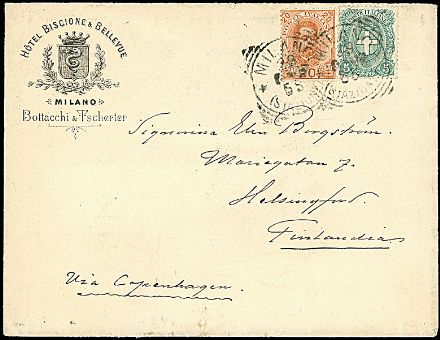 HÔTEL BISCIONE & BELLEVUE
MILANO
Bottacchi & Tscherter
20
20
20
5
MILANO
Signorina Elin Borgström.
Mariegatan 7.
Helsingfors.
Finlandia
Via Copenhagen.